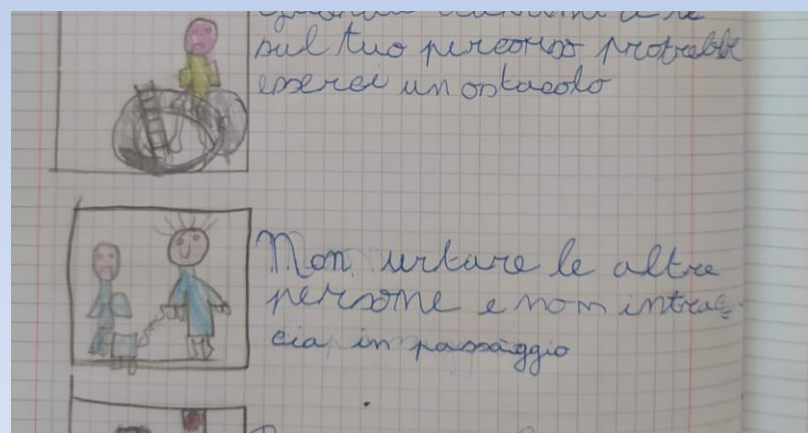 sul tuo percorso protrebbe
esserci un ostacolo
Non urtare le altre
persone e non intrac-
cia in passaggio